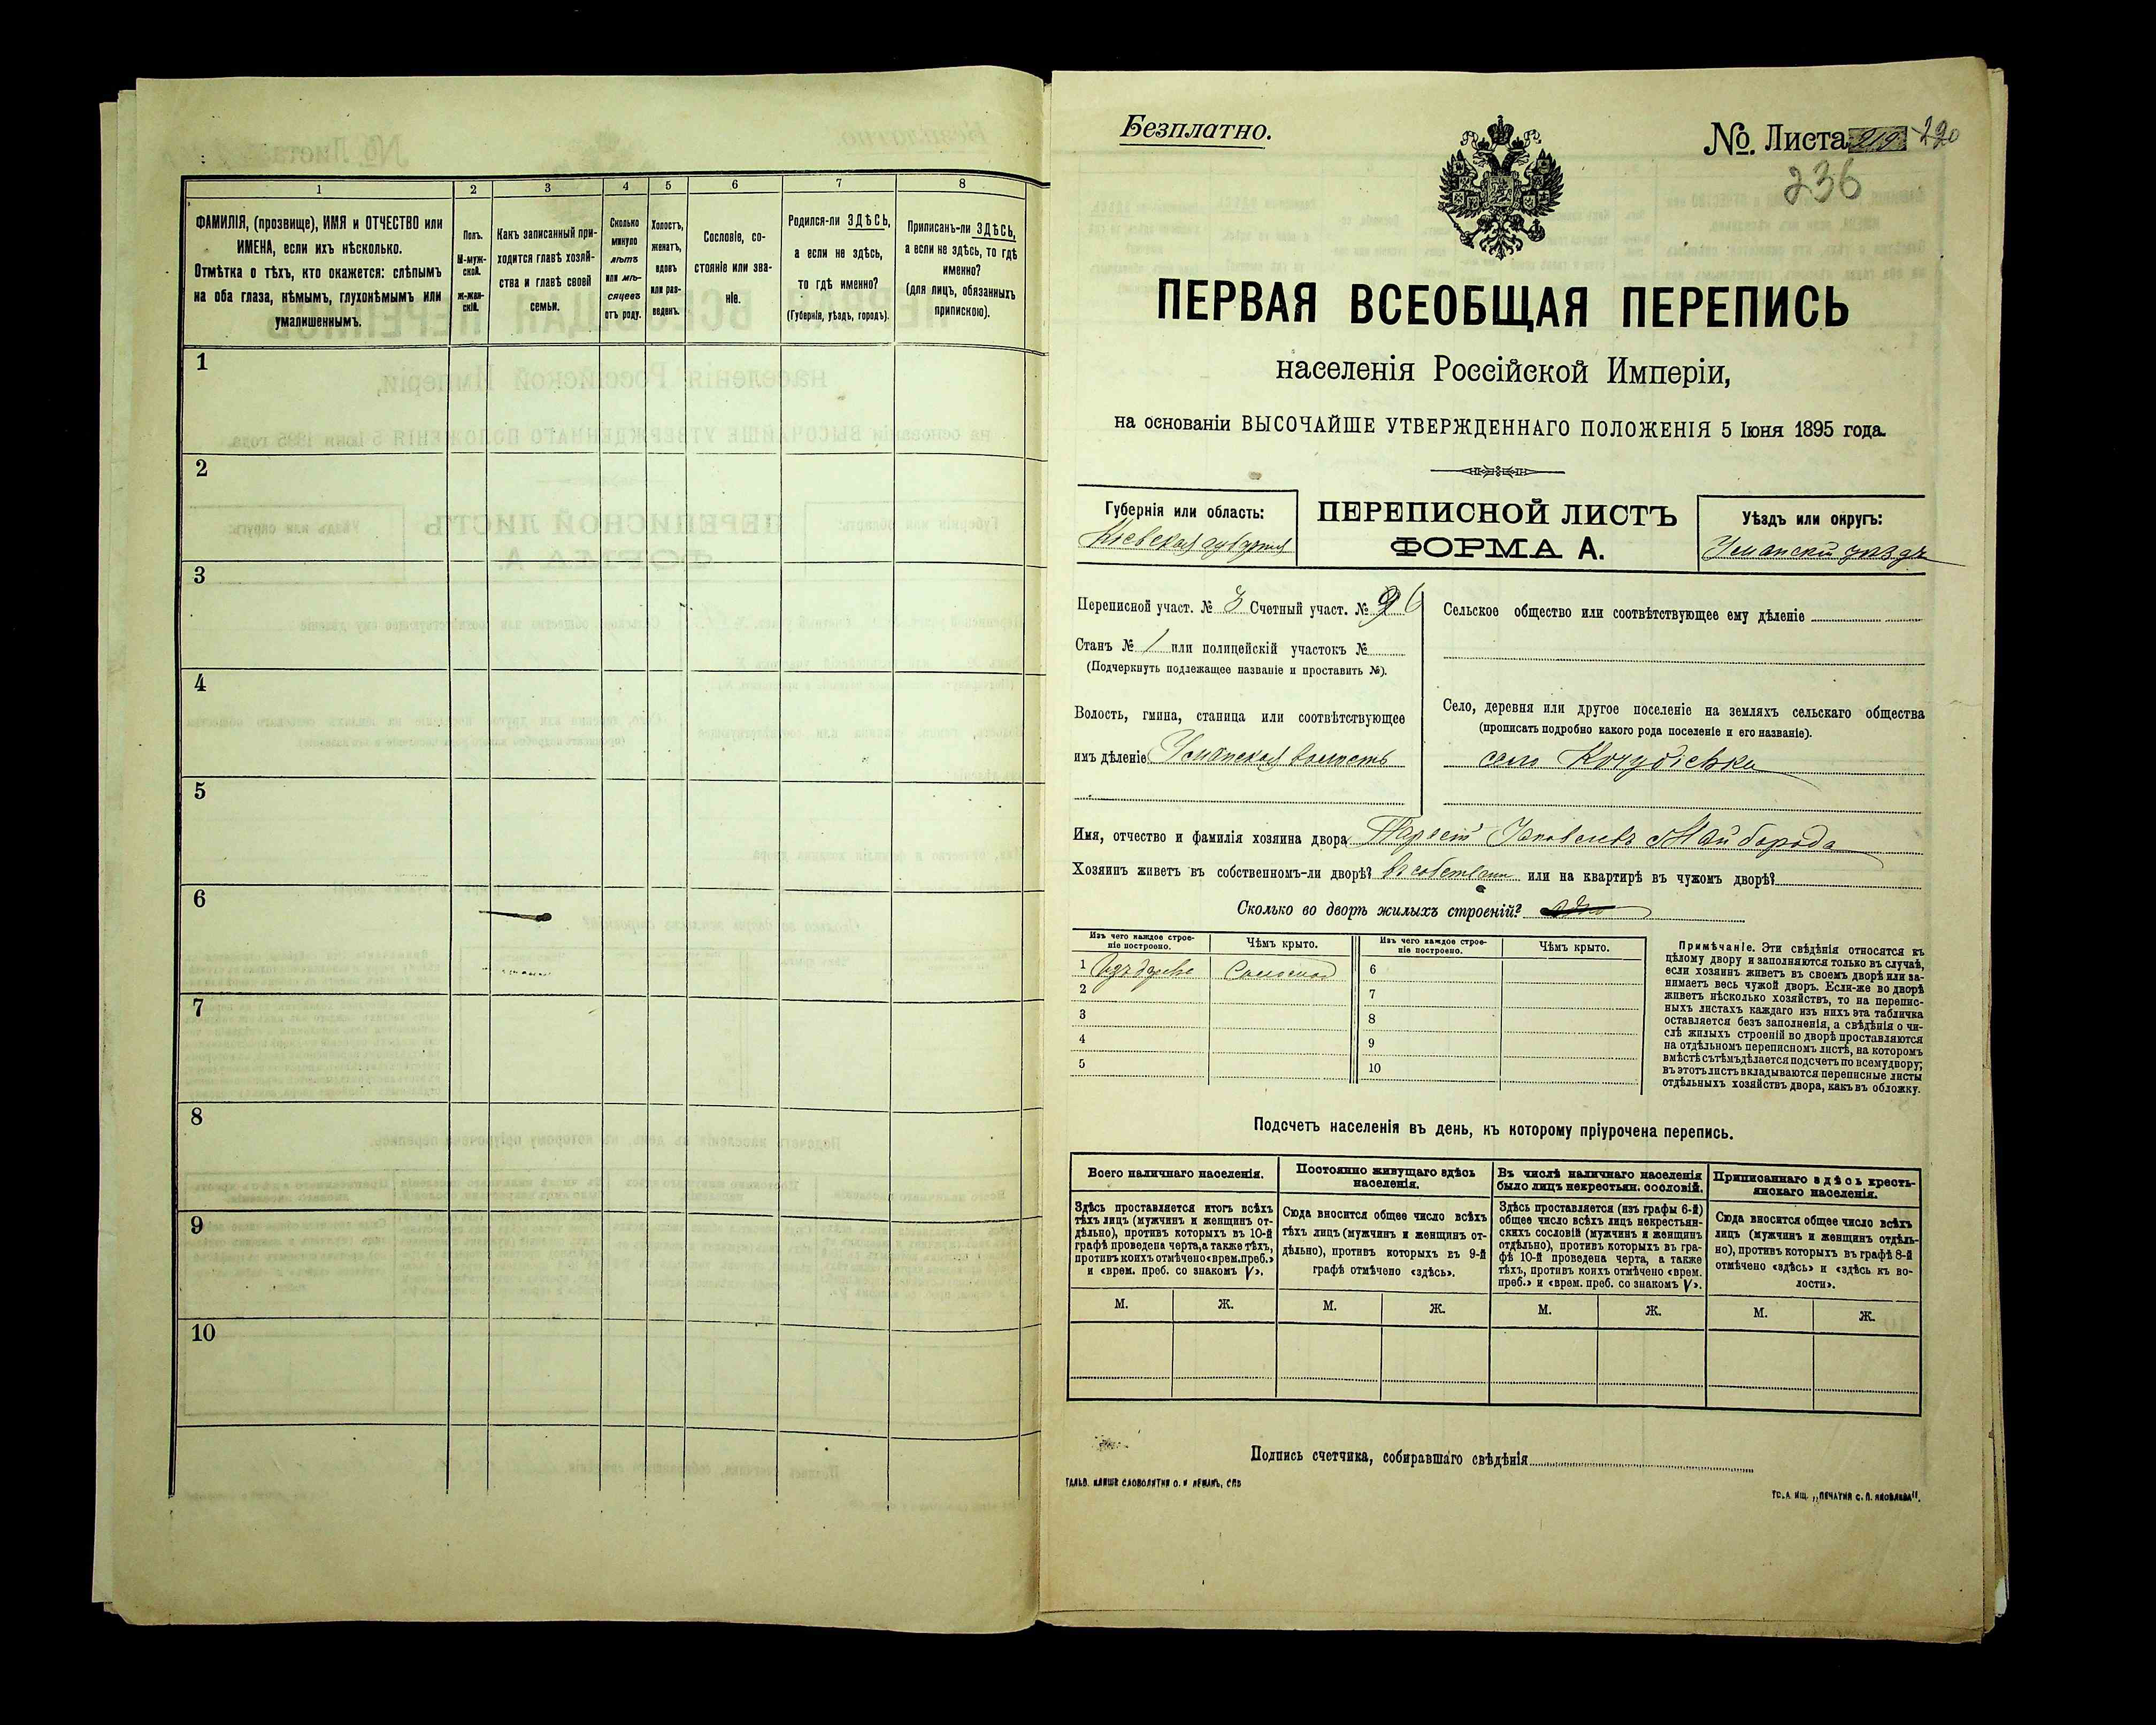 1 2 3 4 5 6 7 8
ФАМИЛІЯ, (прозвище), ИМЯ и ОТЧЕСТВО или
ИМЕНА, если ихъ нѣсколько.
Отмѣтка о тѣхъ, кто окажется: слѣпымъ
на оба глаза, нѣмымъ, глухонѣмымъ или
умалишеннымъ.
Полъ.
М-муж-
ской.
Ж-жен-
скій.
Какъ записанный при-
ходится главѣ хозяй-
ства и главѣ своей
семьи.
Сколько
минуло
лѣтъ
или мѣ-
сяцевъ
отъ роду.
Холостъ,
женатъ,
вдовъ
или раз-
веденъ.
Сословіе, со-
стояніе или зва-
ніе.
Родился-ли ЗДѢСЬ,
а если не здѣсь,
то гдѣ именно?
(Губернія, уѣздъ, городъ).
Приписанъ-ли ЗДѢСЬ,
а если не здѣсь, то гдѣ
именно?
(для лицъ, обязанныхъ
припискою).
1
2
3
4
5
6
7
8
9
10
Безплатно.
№. Листа 220
236
ПЕРВАЯ ВСЕОБЩАЯ ПЕРЕПИСЬ
населенія Россійской Имперіи,
на основаніи ВЫСОЧАЙШЕ УТВЕРЖДЕННАГО ПОЛОЖЕНІЯ 5 Іюня 1895 года.
Губернія или область:
Кіевская губернія
ПЕРЕПИСНОЙ ЛИСТЪ
ФОРМА А.
Уѣздъ или округъ:
Уманскій уѣздъ
Переписной участ. № 3 Счетный участ. №
Станъ № 1 или полицейскій участокъ №
(Подчеркнуть подлежащее названіе и проставить №).
Волость, гмина, станица или соотвѣтствующее
имъ дѣленіе Уманская волость
Сельское общество или соотвѣтствующее ему дѣленіе
Село, деревня или другое поселеніе на земляхъ сельскаго общества
(прописать подробно какого рода поселеніе и его названіе).
село Кочубіевка
Имя, отчество и фамилія хозяина двора Яковлевъ Майборода
Хозяинъ живетъ въ собственномъ-ли дворѣ? или на квартирѣ въ чужомъ дворѣ?
Сколько во дворѣ жилыхъ строеній?
Изъ чего каждое строе-
ніе построено.
Чѣмъ крыто.
Изъ чего каждое строе-
ніе построено.
Чѣмъ крыто.
1 Соломой 6
2 7
3 8
4 9
5 10
Примѣчаніе. Эти свѣдѣнія относятся къ
цѣлому двору и заполняются только въ случаѣ,
если хозяинъ живетъ въ своемъ дворѣ или за-
нимаетъ весь чужой дворъ. Если-же во дворѣ
живетъ нѣсколько хозяйствъ, то на перепис-
ныхъ листахъ каждаго изъ нихъ эта табличка
оставляется безъ заполненія, а свѣдѣнія о чи-
слѣ жилыхъ строеній во дворѣ проставляются
на отдѣльномъ переписномъ листѣ, на которомъ
вмѣстѣ съ тѣмъ дѣлается подсчетъ по всему двору;
въ этотъ листъ вкладываются переписные листы
отдѣльныхъ хозяйствъ двора, какъ въ обложку.
Подсчетъ населенія въ день, къ которому пріурочена перепись.
Всего наличнаго населенія.
Здѣсь проставляется итогъ всѣхъ
тѣхъ лицъ (мужчинъ и женщинъ от-
дѣльно), противъ которыхъ въ 10-й
графѣ проведена черта, а также тѣхъ,
противъ коихъ отмѣчено «врем. преб.»
и «врем. преб. со знакомъ V».
Постоянно живущаго здѣсь
населенія.
Сюда вносится общее число всѣхъ
тѣхъ лицъ (мужчинъ и женщинъ от-
дѣльно), противъ которыхъ въ 9-й
графѣ отмѣчено «здѣсь».
Въ числѣ наличнаго населенія
было лицъ некрестьян. сословій.
Здѣсь проставляется (изъ графы 6-й)
общее число всѣхъ лицъ некрестьян-
скихъ сословій (мужчинъ и женщинъ
отдѣльно), противъ которыхъ въ гра-
фѣ 10-й проведена черта, а также
тѣхъ, противъ коихъ отмѣчено «врем.
преб.» и «врем. преб. со знакомъ V».
Приписаннаго здѣсь кресть-
янскаго населенія.
Сюда вносится общее число всѣхъ
лицъ (мужчинъ и женщинъ отдѣль-
но), противъ которыхъ въ графѣ 8-й
отмѣчено «здѣсь» и «здѣсь къ во-
лости».
М. Ж. М. Ж. М. Ж. М. Ж.
Подпись счетчика, собиравшаго свѣдѣнія
ГАЛЬВ. КЛИШЕ СЛОВОЛИТНИ О. И ЛЕМАНЪ, СПБ
„ПЕЧАТНЯ С. П. ЯКОВЛЕВА“.